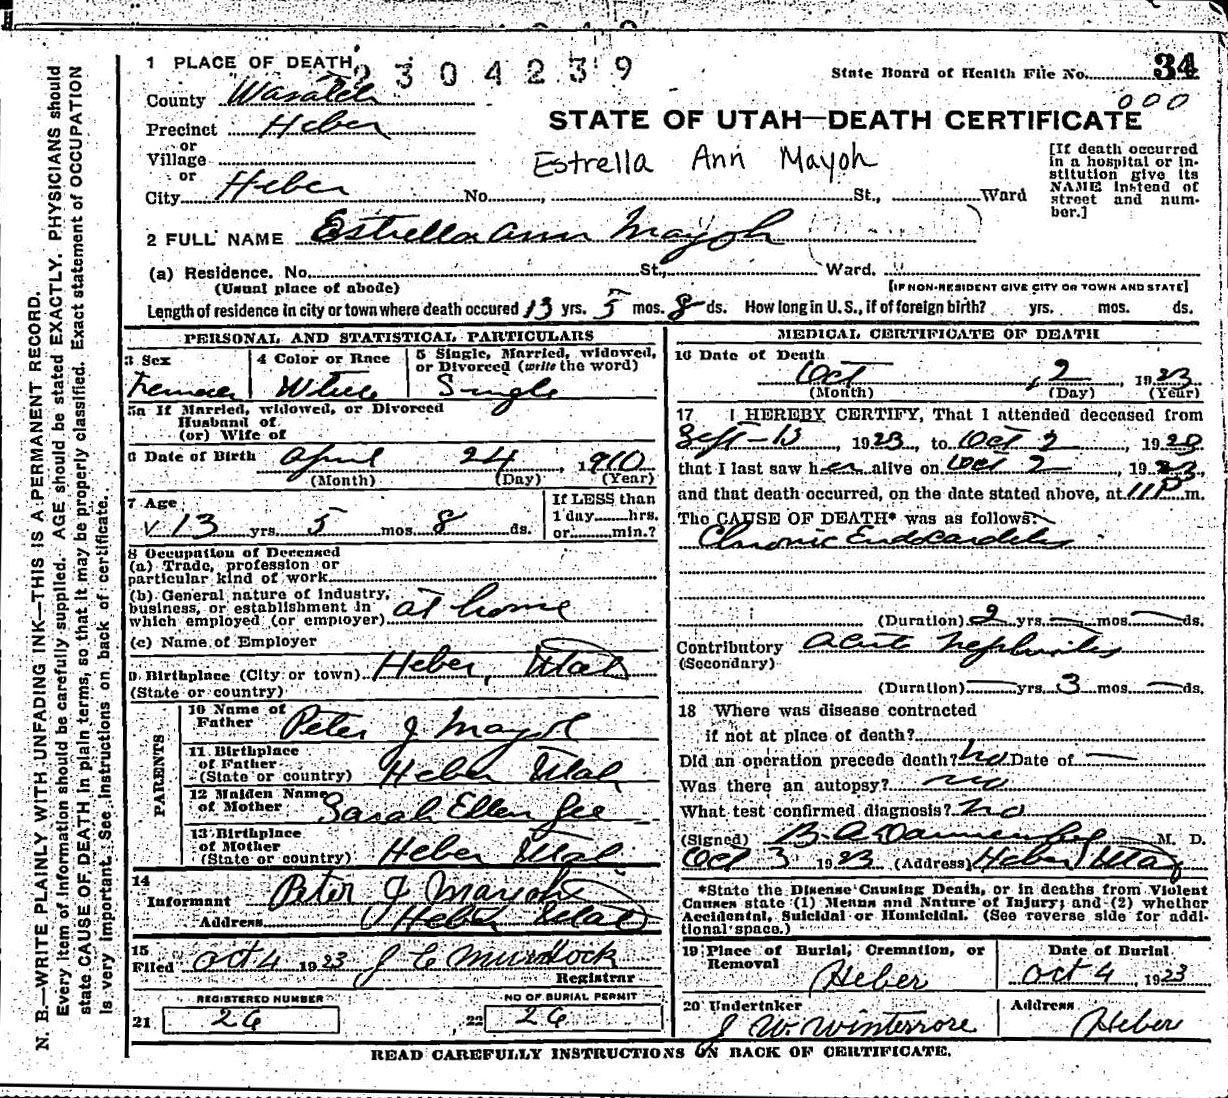 1 PLACE OF DEATH 2304239 State Board of Health File No. 34
County Wasatch 000
Precinct Heber STATE OF UTAH—DEATH CERTIFICATE
or
Village Estrella Ann Mayoh
or
City Heber No. St., Ward
[If death occurred
in a hospital or in-
stitution give its
NAME instead of
street and num-
ber.]
2 FULL NAME Estrella Ann Mayoh
(a) Residence. No. St., Ward.
(Usual place of abode) [IF NON-RESIDENT GIVE CITY OR TOWN AND STATE]
Length of residence in city or town where death occured 13 yrs. 5 mos. 8 ds. How long in U.S., if of foreign birth? yrs. mos. ds.
PERSONAL AND STATISTICAL PARTICULARS
3 Sex 4 Color or Race 5 Single, Married, widowed,
or Divorced (write the word)
Female White Single
5a If Married, widowed, or Divorced
Husband of
(or) Wife of
6 Date of Birth April 24, 1910
(Month) (Day) (Year)
7 Age If LESS than
1 day hrs.
13 yrs. 5 mos. 8 ds. or min.?
8 Occupation of Deceased
(a) Trade, profession or
particular kind of work
(b) General nature of industry,
business, or establishment in
which employed (or employer) at home
(c) Name of Employer
9 Birthplace (City or town) Heber, Utah
(State or country)
PARENTS
10 Name of
Father Peter J Mayoh
11 Birthplace
of Father
(State or country) Heber Utah
12 Maiden Name
of Mother Sarah Ellen Lee
13 Birthplace
of Mother
(State or country) Heber Utah
14
Informant Peter J Mayoh
Address Heber Utah
15
Filed Oct 4 1923 J C Murdock
Registrar
REGISTERED NUMBER NO OF BURIAL PERMIT
21 26 22 26
MEDICAL CERTIFICATE OF DEATH
16 Date of Death
Oct 2, 1923
(Month) (Day) (Year)
17 I HEREBY CERTIFY, That I attended deceased from
Sept-13, 1923, to Oct 2, 1923
that I last saw her alive on Oct 2, 1923,
and that death occurred, on the date stated above, at 11P m.
The CAUSE OF DEATH* was as follows:
Chronic Endocarditis
(Duration) 2 yrs. mos. ds.
Contributory Acute Nephritis
(Secondary)
(Duration) yrs. 3 mos. ds.
18 Where was disease contracted
if not at place of death?
Did an operation precede death? no Date of
Was there an autopsy? no
What test confirmed diagnosis? no
(Signed) M. D.
Oct 3 1923 (Address) Heber Utah
*State the Disease Causing Death, or in deaths from Violent
Causes state (1) Means and Nature of Injury; and (2) whether
Accidental, Suicidal or Homicidal. (See reverse side for addi-
tional space.)
19 Place of Burial, Cremation, or Date of Burial
Removal
Heber Oct 4 1923
20 Undertaker Address
J W. Winterrose Heber
READ CAREFULLY INSTRUCTIONS ON BACK OF CERTIFICATE.
N. B.—WRITE PLAINLY WITH UNFADING INK—THIS IS A PERMANENT RECORD.
Every item of information should be carefully supplied. AGE should be stated EXACTLY. PHYSICIANS should
state CAUSE OF DEATH in plain terms, so that it may be properly classified. Exact statement of OCCUPATION
is very important. See instructions on back of certificate.